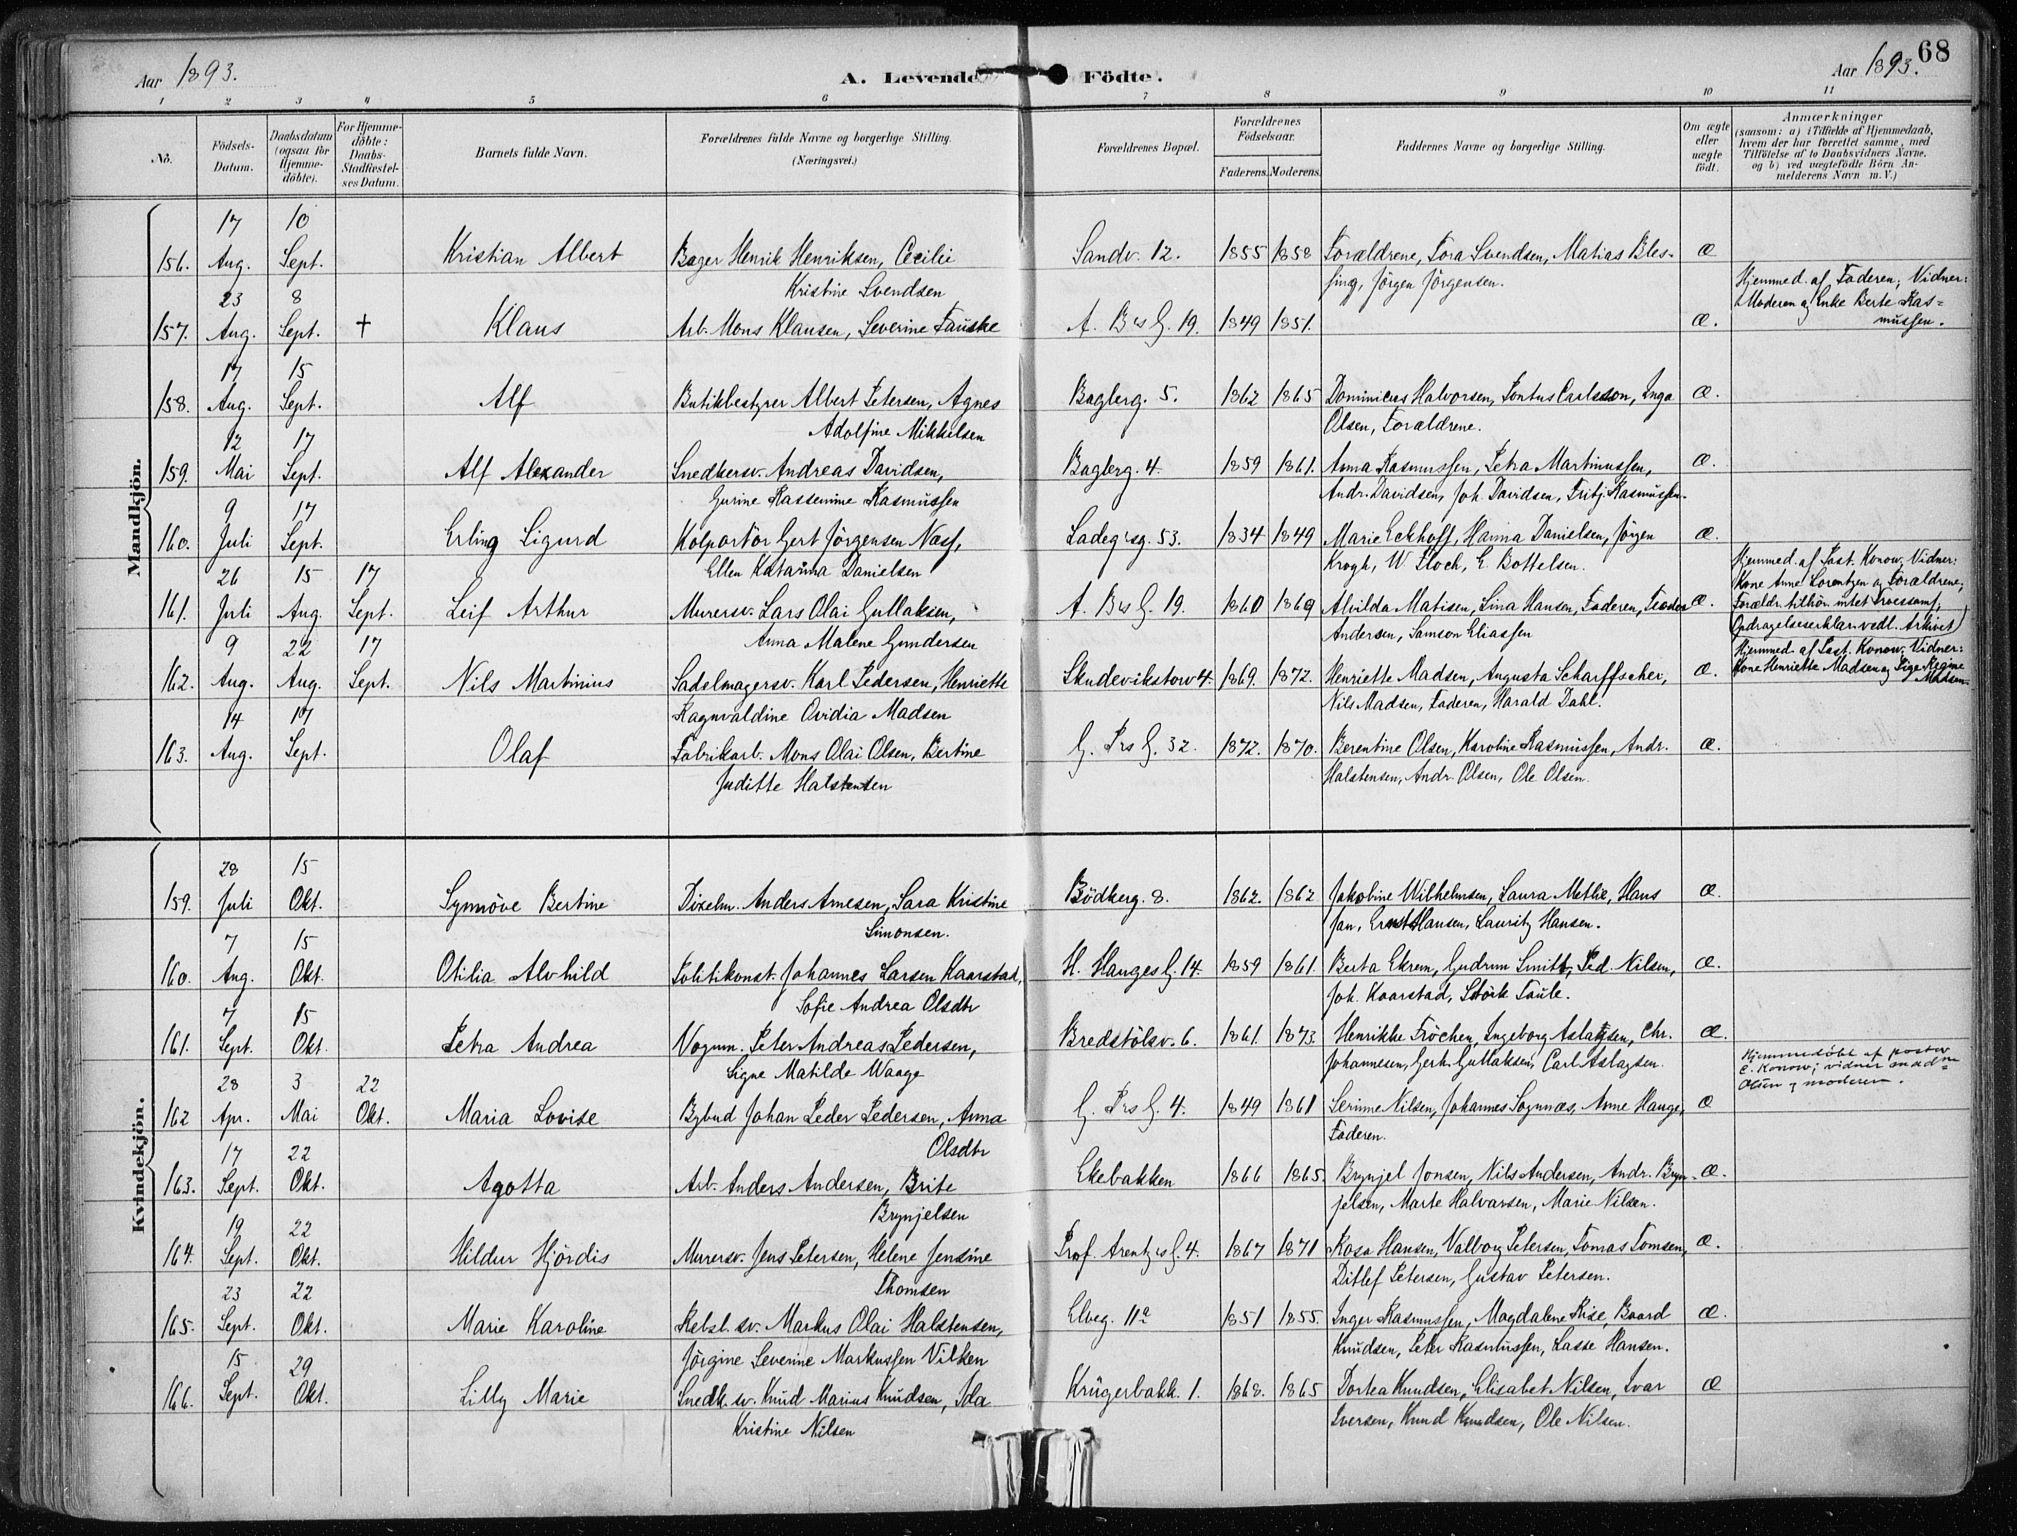 Aar 1893.
A. Levende Födte.
Aar 1893.
68
1 2 3 4 5 6 7 8 9 10 11
No.
Födsels-Datum.
Daabsdatum (ogsaa for Hjemme-döbte).
For Hjemme-döbte: Daabs-Stadfæstel-ses Datum.
Barnets fulde Navn.
Forældrenes fulde Navne og borgerlige Stilling.
(Næringsvei.)
Forældrenes Bopæl.
Forældrenes Födselsaar.
Faderens. Moderens.
Faddernes Navne og borgerlige Stilling.
Om ægte eller uægte födt.
Anmærkninger
(saasom: a) i Tilfælde af Hjemmedaab,
hvem der har forrettet samme, med
Tilföielse af to Daabsvidners Navne.
og b) ved uægtefödte Börn An-
melderens Navn m. V.)
Mandkjön.
17 10
156. Aug. Sept. Kristian Albert Bager Henrik Henriksen, Cecilie Sandv. 12. 1855 1858 Forældrene, Tora Svendsen, Matias Bles- æ
Kristine Svendsen sing, Jörgen Jörgensen.
Hjemmed. af Faderen; Vidner:
Moderen og Enke Berte Ras-
mussen.
23 8
157. Aug. Sept. † Klaus Arb. Mons Klausen, Severine Fauske A. Bs G. 19. 1849 1851. æ.
17 15
158. Aug. Sept. Alf Butikbestyrer Albert Petersen, Agnes Bagberg. 5. 1862 1865 Dominicus Halvorsen, Pontus Carlsson, Inga æ.
Adolfine Mikkelsen Olsen, Forældrene.
12 17
159. Mai Sept. Alf Alexander Snedkersv. Andreas Davidsen, Bagberg. 4. 1859 1861. Anna Rasmussen, Petra Martinussen, æ.
Gurine Rassemine Rasmussen Andr. Davidsen, Joh. Davidsen, Fritz Rasmussen.
9 17
160. Juli Sept. Erling Sigurd Kolportör Gert Jörgensen Næss, Ladegsg. 53. 1834 1849 Marie Eckhoff, Hanna Danielsen, Jörgen æ.
Ellen Katarina Danielsen Krogh, W. Floch, E. Bottelsen.
Hjemmed. af Past. Konow, Vidner:
Kone Anne Lorentzen og Forældrene;
Forældr. tilhör. intet Troessamf.
Opdragelseserklær. vedl. Arkivet)
26 15 17
161. Juli Aug. Sept. Leif Arthur Murersv. Lars Olai Gullaksen, A. Bs G. 19. 1860 1869 Alvilda Matisen, Lina Hansen, Faderen, Teodor æ.
Anna Malene Gundersen Andersen, Samson Eliassen
9 22 17
162. Aug. Aug. Sept. Nils Martinius Sadelmagersv. Karl Pedersen, Henriette Skudevikstorv 4. 1869. 1872. Henriette Madsen, Augusta Scharffscher, æ.
Ragnvaldine Ovidia Madsen Nils Madsen, Faderen, Harald Dahl.
Hjemmed. af Past. Konow, Vidner:
Kone Henriette Madsen og Pige Regine
Madsen.
14 17
163. Aug. Sept. Olaf Fabrikarb. Mons Olai Olsen, Bertine G. Prs G. 32. 1872. 1870. Berentine Olsen, Karoline Rasmussen, Andr. æ.
Juditte Halstensen Halstensen, Andr. Olsen, Ole Olsen.
Kvindekjön.
28 15
159. Juli Okt. Synnöve Bertine Dixelm. Anders Arnesen, Sara Kristine Bödkerg. 8. 1862. 1862 Jakobine Wilhelmsen, Laura Methe, Hans æ.
Simonsen. Jan, Ernst Hansen, Lauritz Hansen.
7 15
160. Aug. Okt. Otilia Alvhild Politikonst. Johannes Larsen Kaarstad, H. Hauges G. 14. 1859 1861. Berta Ekrem, Gudrun Smitt, Ped. Nilsen, æ.
Sofie Andrea Olsdtr Joh. Kaarstad, Störk Taule.
7 15
161. Sept. Okt. Petra Andrea Vognm. Peter Andreas Pedersen, Bredstölsv. 6. 1861. 1873. Henrikke Fröchen, Ingeborg Aslaksen, Chr. æ.
Signe Matilde Waage Johannesen, Gerh. Gullaksen, Carl Aslagsen.
Hjemmedöbt af pastor
C. Konow; vidner mad
Olsen og moderen.
28 3 22
162 Apr. Mai Okt. Maria Lovise Bybud Johan Peder Pedersen, Anna G. Prs G. 4. 1849 1861 Serinne Nilsen, Johannes Sognnæs, Arne Hauge, æ
Olsdtr Faderen.
17 22
163. Sept. Okt. Agotta Arb. Anders Andersen, Brite Ekebakken 1866 1865. Brynjel Jonsen, Nils Andersen, Andr. Bryn- æ.
Brynjelsen jelsen, Marte Halvarsen, Marie Nilsen.
19 22
164. Sept. Okt. Hildur Hjördis Murersv. Jens Petersen, Helene Jensine Prof. Arentz's G. 4. 1867 1871 Rosa Hansen, Valborg Petersen, Tomas Tomsen, æ.
Thomsen Ditlef Petersen, Gustav Petersen.
23 22
165. Sept. Okt. Marie Karoline Rebsl. sv. Markus Olai Halstensen, Elveg. 11a 1851 1855. Inger Rasmussen, Magdalene Rise, Baard æ.
Jörgine Severine Markussen Vilken Knudsen, Peter Rasmussen, Lasse Hansen.
15 29
166. Sept. Okt. Lilly Marie Snedk. sv. Knud Marius Knudsen, Ida Krügerbakk. 1. 1868. 1865 Dortea Knudsen, Elisabet Nilsen, Ivar æ
Kristine Nilsen Iversen, Knud Knudsen, Ole Nilsen.